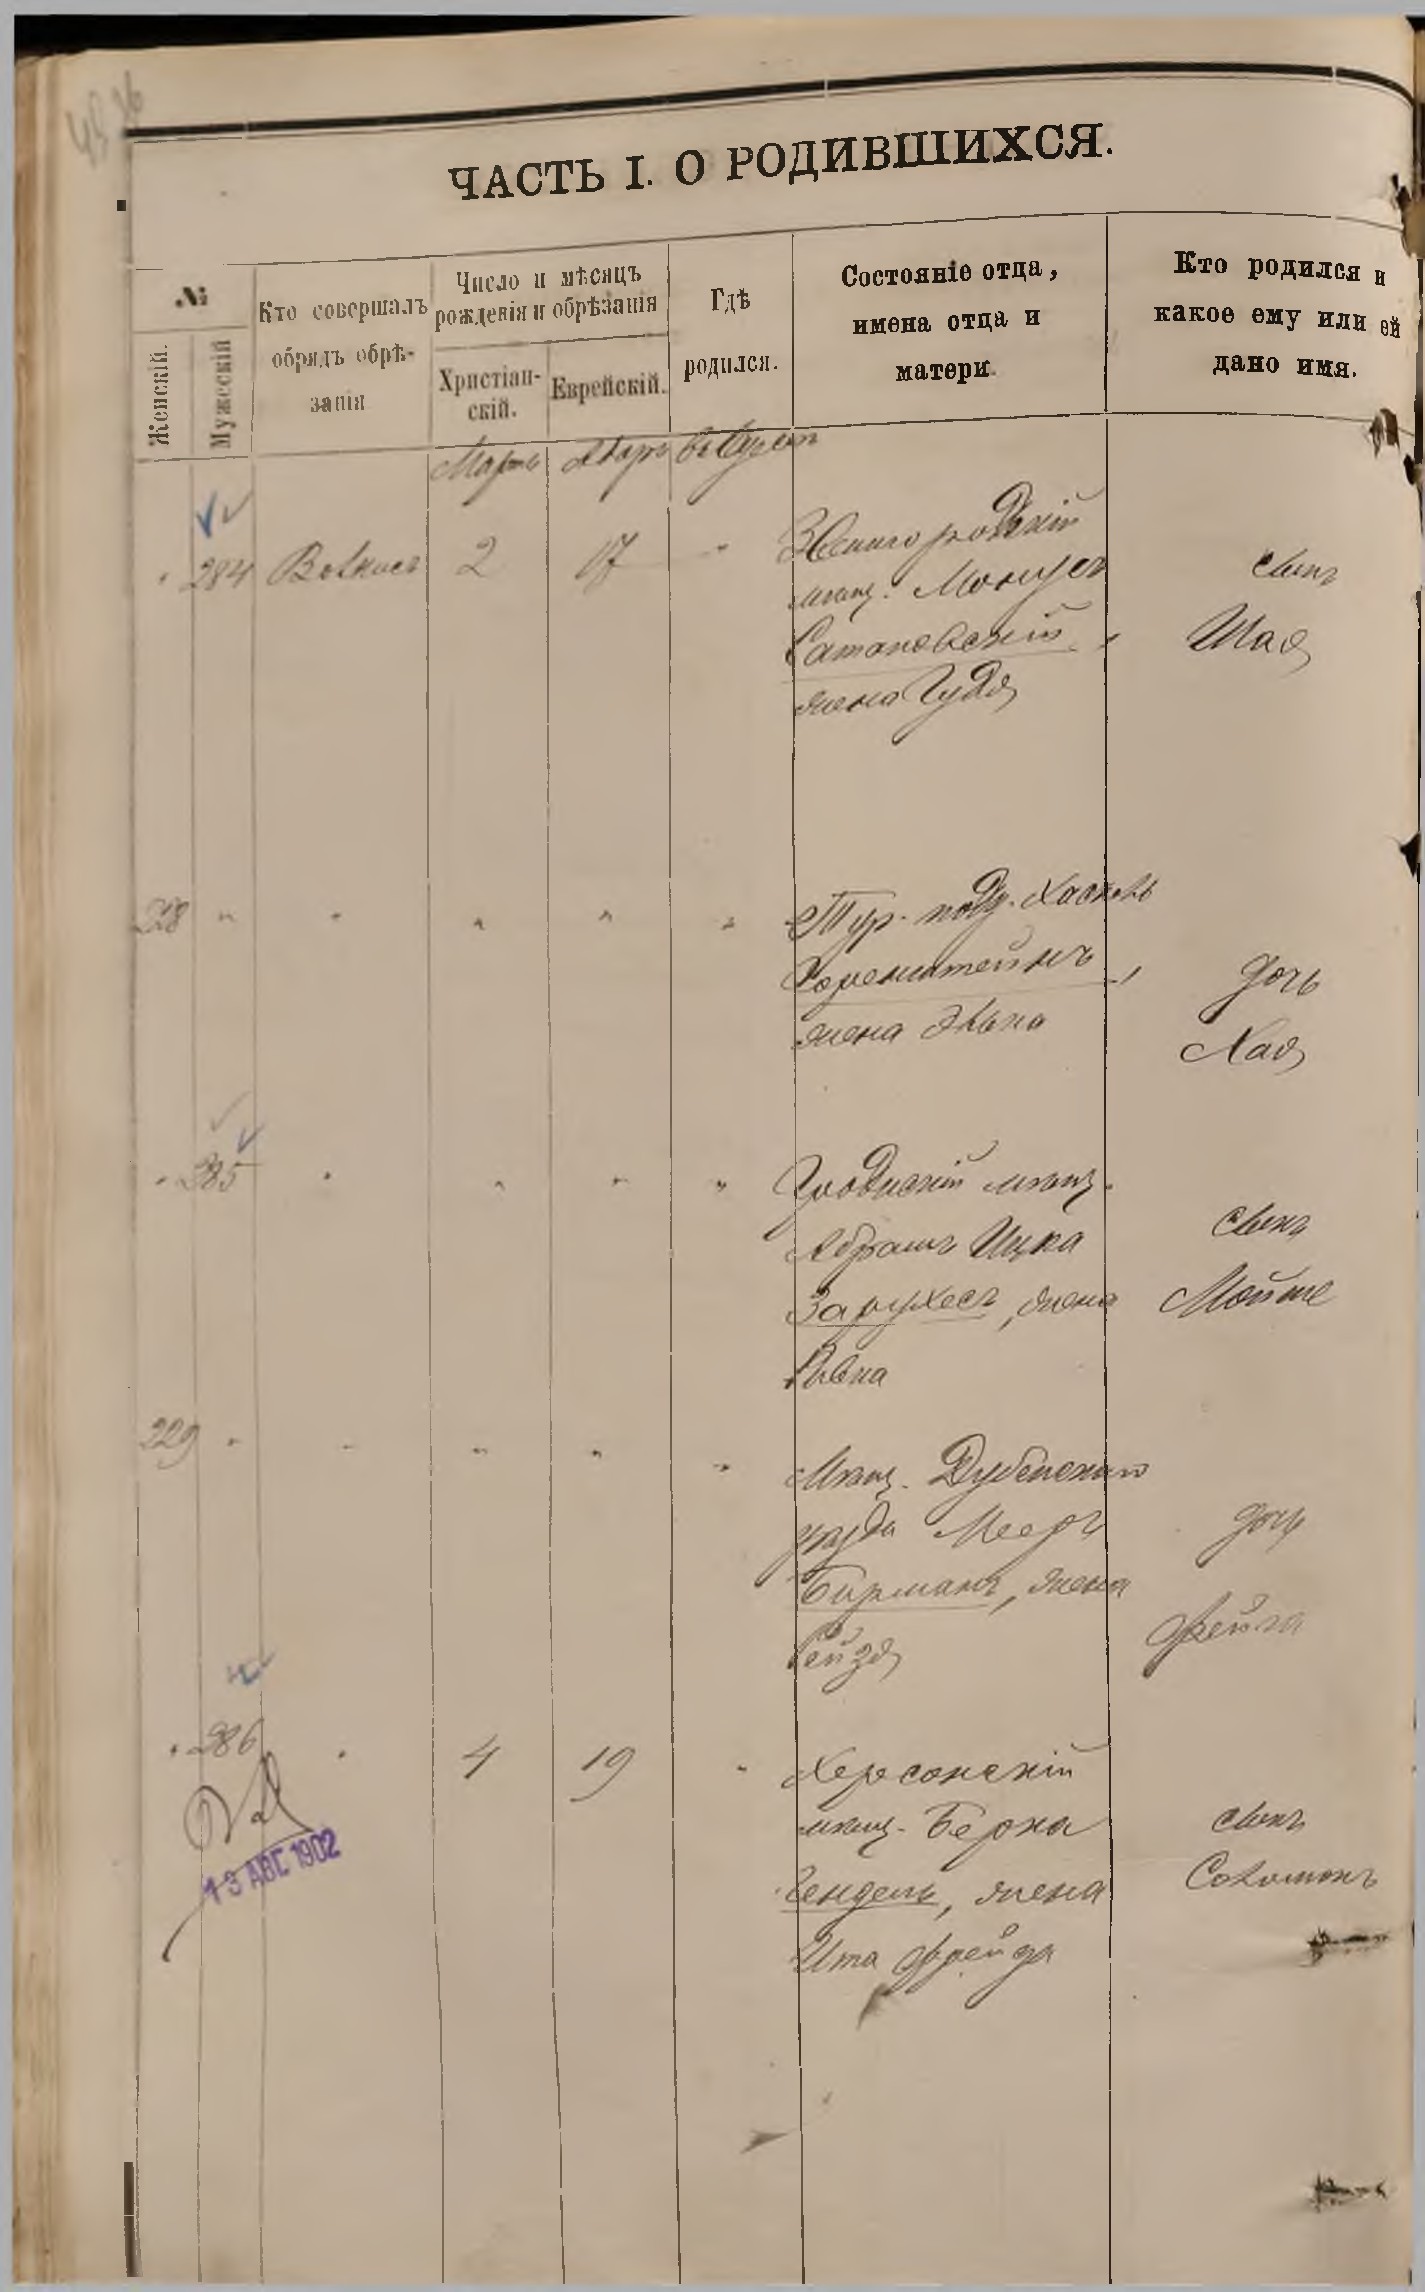 ЧАСТЬ I. О РОДИВШИХСЯ.
№
Женскій.
Мужескій
Кто совершалъ
обрядъ обрѣ-
занія
Число и мѣсяцъ
рожденія и обрѣзанія
Христіан-
скій.
Еврейскій.
Гдѣ
родился.
Состояніе отца,
имена отца и
матери.
Кто родился и
какое ему или ей
дано имя.
Мартъ
284
2
17
Звенигородскій
мѣщ. Монусъ
Сатановскій,
жена Гудя
сынъ
Шая
228
Тур. подд. Хаскель
Соренштейнъ,
жена Эльна
дочь
Хая
285
Гродненскій мѣщ.
Абрамъ Ицка
Зарухесъ, жена
Ривка
сынъ
Мойше
229
Мѣщ. Дубенскаго
уѣзда Мееръ
Бирманъ, жена
Рейзя
дочь
Фейга
286
4
19
Херсонскій
мѣщ. Берка
Гендель, жена
Ита Фрейда
сынъ
Соломонъ
13 АВГ 1902